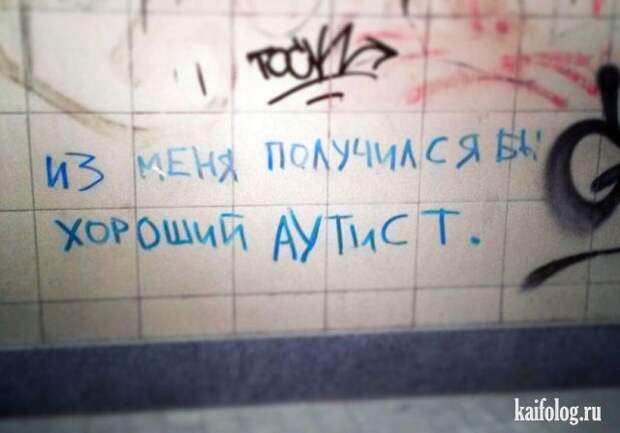 ИЗ МЕНЯ ПОЛУЧИЛСЯ БЫ
ХОРОШИЙ АУТИСТ.
kaifolog.ru